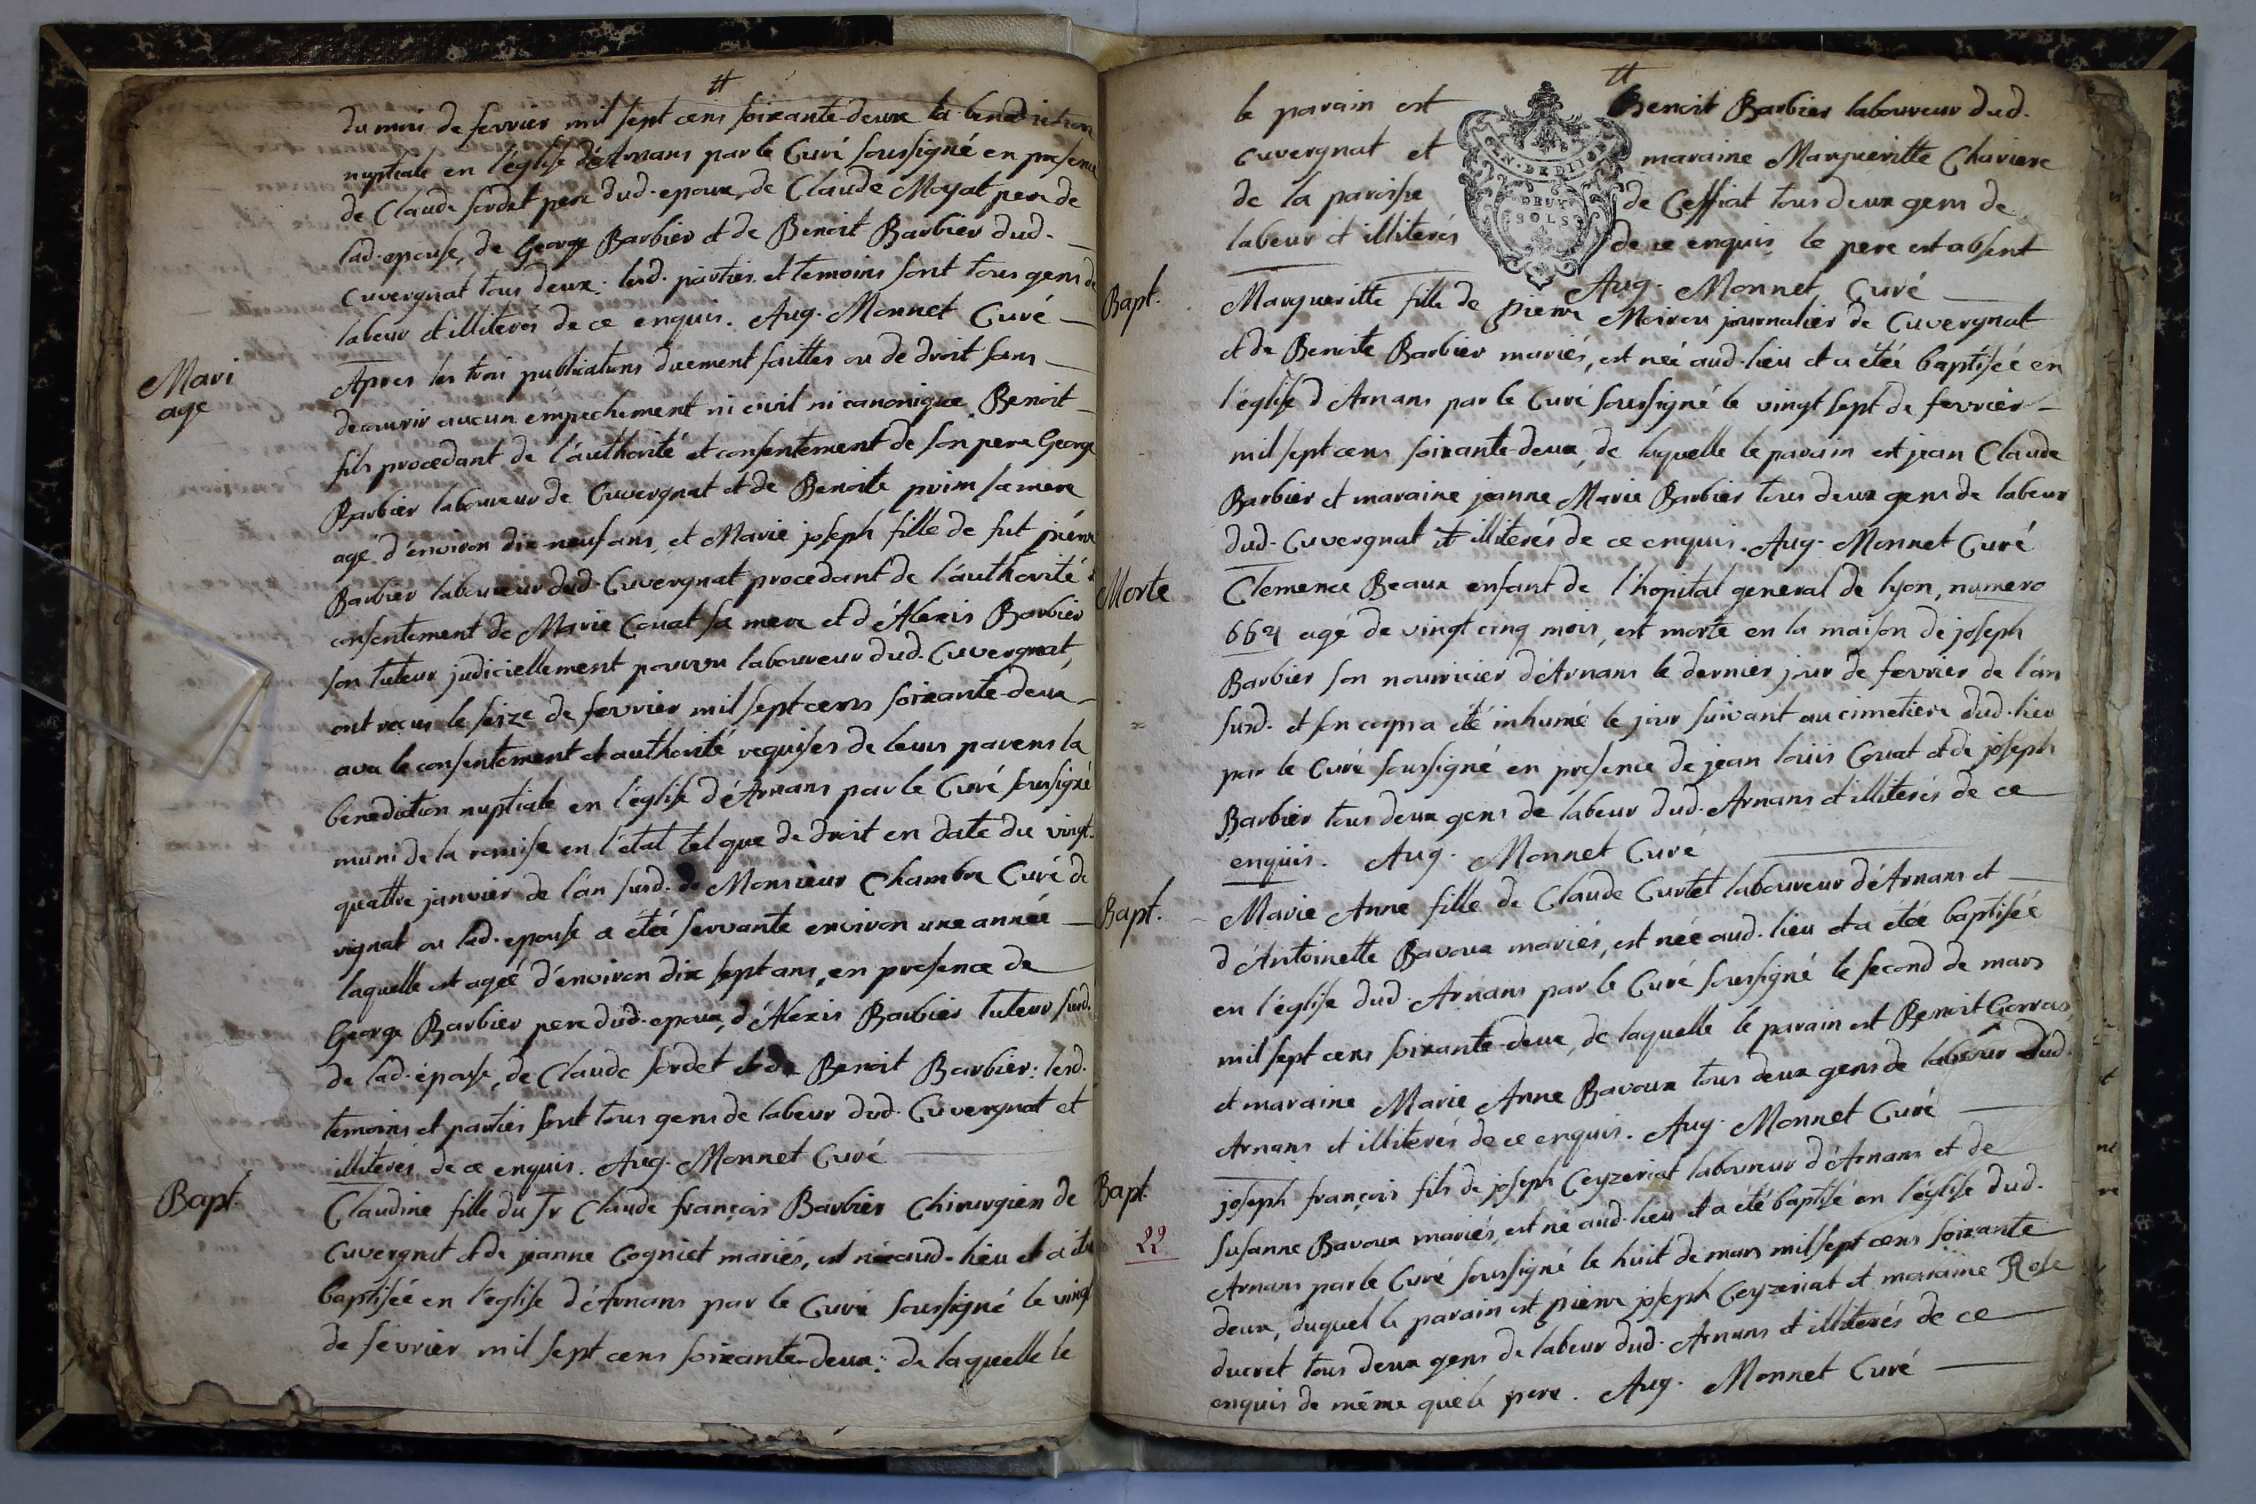 tt
du mois de fevrier mil sept cens soixante-deux la benediction
nuptiale en l'église d'Arnans par le Curé soussigné en presence
de Claude sordet pere dud. epoux, de Claude Moyat pere de
lad. epouse, de George Barbier et de Benoit Barbier dud.
Cuvergnat tous deux: lesd. parties et temoins sont tous gens de
labeur et illiterés de ce enquis. Aug. Monnet Curé
Mari
age
Apres les trois publications duement faittes ou de droit sans
decouvrir aucun empechement ni civil ni canonique Benoit
fils procedant de l'authorité et consentement de son pere George
Barbier laboureur de Cuvergnat et de Benoite prim sa mere
agé d'environ dix-neuf ans, et Marie joseph fille de fut pierre
Barbier laboureur dud. Cuvergnat procedant de l'authorité &
consentement de Marie Couat sa mere et d'Alexis Barbier
son tuteur judiciellement pourvu laboureur dud. Cuvergnat,
ont reçus le seize de fevrier mil sept cens soixante-deux
avec le consentement et authorité requises de leurs parens la
benediction nuptiale en l'église d'Arnans par le Curé soussigné
muni de la remise en l'état tel que de droit en date du vingt-
quattre janvier de l'an susd. de Monsieur Chambre Curé de
vignat ou lad. epouse a étée servante environ une année
laquelle est agée d'environ dix sept ans, en presence de
George Barbier pere dud. epoux, d'Alexis Barbier tuteur susd.
de lad. épouse, de Claude sordet et de Benoit Barbier: lesd.
temoins et parties sont tous gens de labeur dud. Cuvergnat et
illiterés de ce enquis. Aug. Monnet Curé
Bapt.
Claudine fille du Sr Claude françois Barbier Chirurgien de
Cuvergnat et de jeanne Cogniet mariés, est née aud. lieu et a été
baptisée en l'eglise d'Arnans par le Curé soussigné le vingt
de fevrier mil sept cens soixante-deux: de laquelle le
tt
le parain est Benoit Barbier laboureur dud.
Cuvergnat et maraine Margueritte Chariere
de la paroisse de Ceffiat tous deux gens de
labeur et illiterés de ce enquis le pere est absent
GEN. DE DIJON
DEUX
SOLS
Aug. Monnet Curé
Bapt.
Margueritte fille de pierre Moirou journalier de Cuvergnat
et de Benoite Barbier mariés, est née aud. lieu et a étée baptisée en
l'église d'Arnans par le Curé soussigné le vingt sept de fevrier
mil sept cens soixante-deux, de laquelle le parain est jean Claude
Barbier et maraine jeanne Marie Barbier tous deux gens de labeur
dud. Cuvergnat et illiterés de ce enquis. Aug. Monnet Curé
Morte
Clemence Beaux enfant de l'hopital general de lyon, numero
agé de vingt cinq mois, est morte en la maison de joseph
Barbier son nourricier d'Arnans le dernier jour de fevrier de l'an
susd. et son corps a été inhumé le jour suivant au cimetiere dud. lieu
par le Curé soussigné en presence de jean louis Couat et de joseph
Barbier tous deux gens de labeur dud. Arnans et illiterés de ce
enquis. Aug. Monnet Curé
Bapt.
Marie Anne fille de Claude Curtet laboureur d'Arnans et
d'Antoinette Bavoux mariés, est née aud. lieu et a étée baptisée
en l'église dud. Arnans par le Curé soussigné le second de mars
mil sept cens soixante-deux, de laquelle le parain est Benoit Gervas,
et maraine Marie Anne Bavoux tous deux gens de labeur dud.
Arnans et illiterés de ce enquis. Aug. Monnet Curé
Bapt.
22
joseph françois fils de joseph Ceyzeriat laboureur d'Arnans et de
Susanne Bavoux mariés, est né aud. lieu et a été baptisé en l'église dud.
Arnans par le Curé soussigné le huit de mars mil sept cens soixante
deux, duquel le parain est pierre joseph Ceyzeriat et maraine Rose
ducret tous deux gens de labeur dud. Arnans et illiterés de ce
enquis de même que le pere. Aug. Monnet Curé